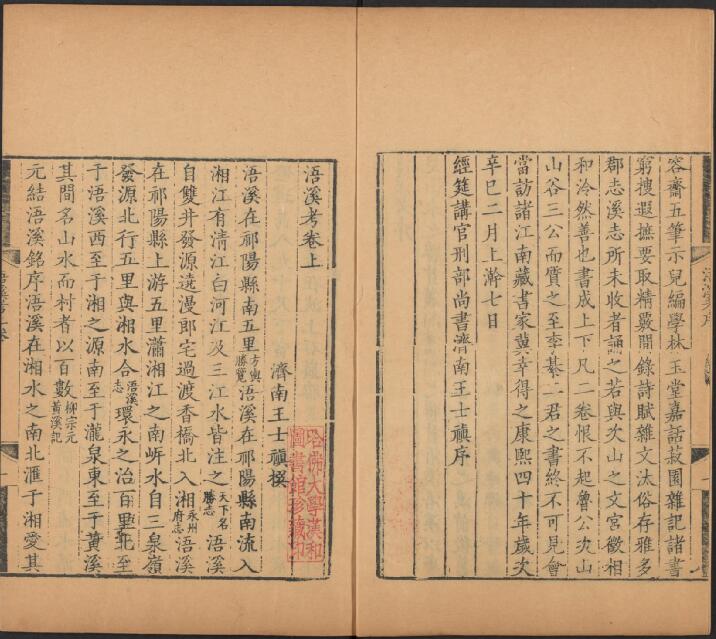 容齋五筆示兒編學林玉堂嘉話菽園雜記諸書
窮搜遐摭要取精覈閒錄詩賦雜文汰俗存雅多
郡志溪志所未收者誦之若與次山之文宮徵相
和泠然善也書成上下凡二卷恨不起魯公次山
山谷三公而質之至李綦二君之書終不可見會
當訪諸江南藏書家冀幸得之康熙四十年歲次
辛巳二月上澣七日
經筵講官刑部尚書濟南王士禛序
浯溪考卷上
濟南王士禛撰
浯溪在祁陽縣南五里方輿勝覽浯溪在祁陽縣南流入
湘江有清江白河江及三江水皆注之天下名勝志浯溪
自雙井發源遶漫郎宅過渡香橋北入湘永州府志浯溪
在祁陽縣上游五里瀟湘江之南岍水自三泉嶺
發源北行五里與湘水合浯溪志環永之治百里北至
于浯溪西至于湘之源南至于瀧泉東至于黃溪
其間名山水而村者以百數柳宗元黃溪記
元結浯溪銘序浯溪在湘水之南北滙于湘愛其
哈佛大學漢和
圖書館珍藏印